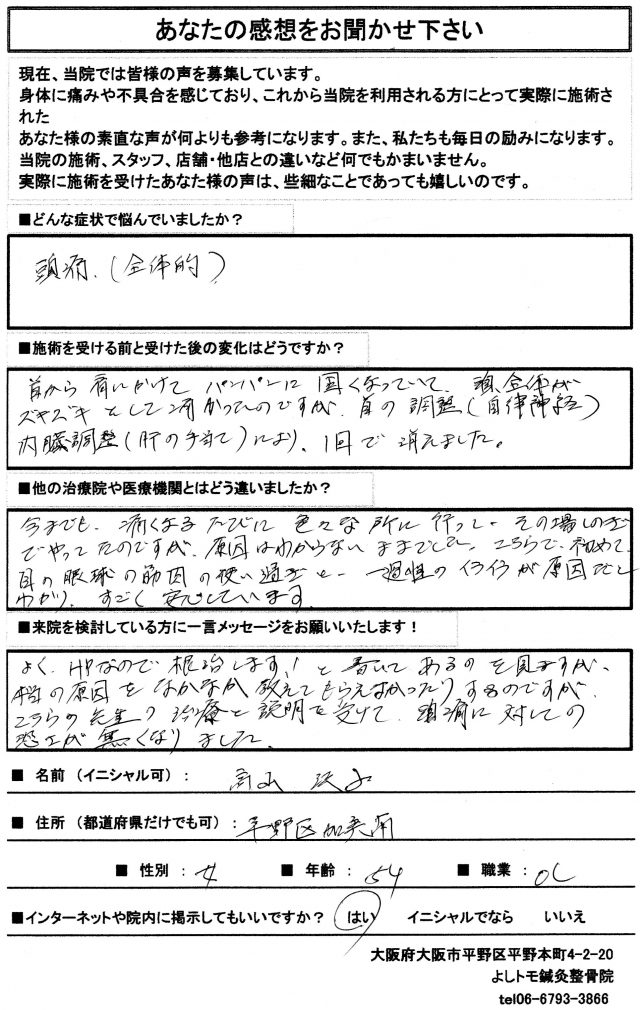 あなたの感想をお聞かせ下さい
現在、当院では皆様の声を募集しています。
身体に痛みや不具合を感じており、これから当院を利用される方にとって実際に施術さ
れた
あなた様の素直な声が何よりも参考になります。また、私たちも毎日の励みになります。
当院の施術、スタッフ、店舗・他店との違いなど何でもかまいません。
実際に施術を受けたあなた様の声は、些細なことであっても嬉しいのです。
■どんな症状で悩んでいましたか？
頭痛.（全体的）
■施術を受ける前と受けた後の変化はどうですか？
首から肩にかけてパンパンに固くなっていて、頭、全体が
ズキズキとして痛かったのですが、首の調整（自律神経）
内臓調整（肝の手当て）により、1回で消えました。
■他の治療院や医療機関とはどう違いましたか？
今までも、痛くなるたびに色々な所に行って、その場しのぎ
でやってたのですが、原因はわからないままでした。こちらで、初めて
目の眼球の筋肉の使い過ぎと、一過性のイライラが原因だと
わかり、すごく安心しています。
■来院を検討している方に一言メッセージをお願いいたします！
よく、HPなので根治します！と書いてあるのを見ますが、
本当の原因をなかなか教えてもらえなかったりするのですが、
こちらの先生の治療と説明を受けて、頭痛に対しての
恐さが無くなりました。
■ 名前（イニシャル可）： 高山
■ 住所（都道府県だけでも可）：平野区加美南
■ 性別：女 ■ 年齢：54 ■ 職業：OL
■インターネットや院内に掲示してもいいですか？ はい イニシャルでなら いいえ
大阪府大阪市平野区平野本町4-2-20
よしトモ鍼灸整骨院
tel06-6793-3866